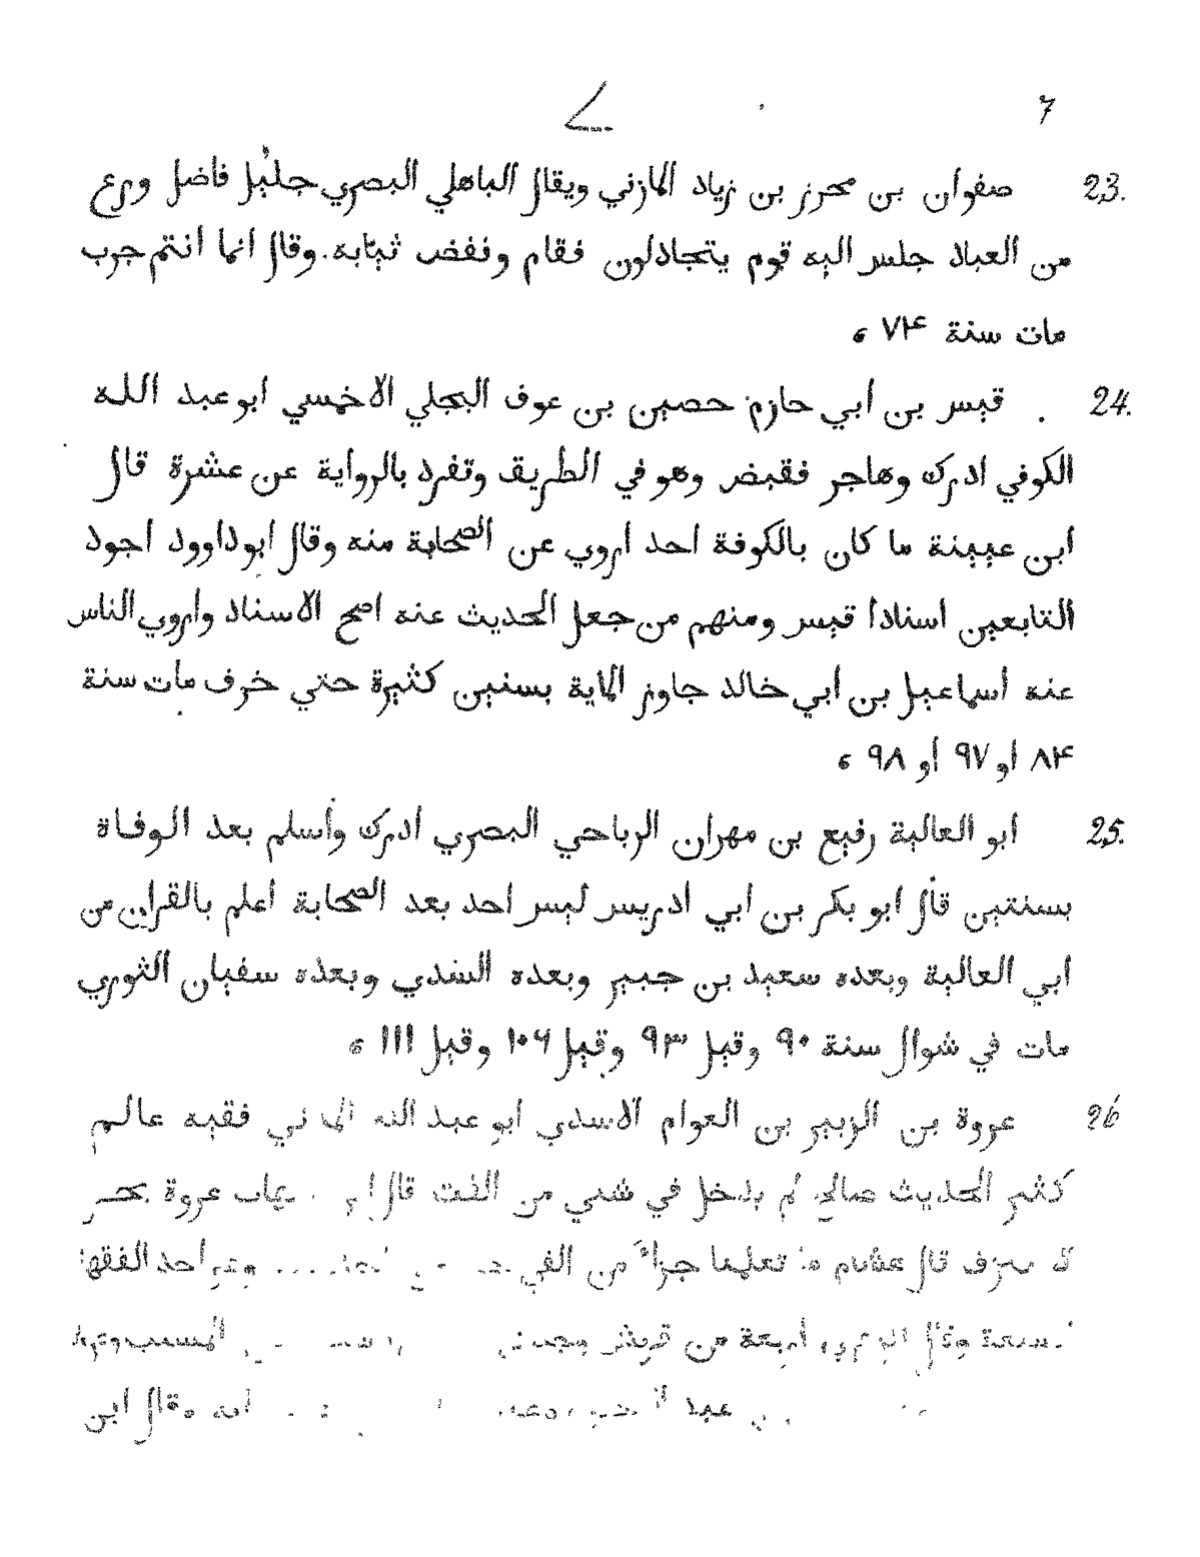 7
23. صفوان بن محرز بن زياد المازني ويقال الباهلي البصري جليل فاضل ورع
من العباد جلس اليه قوم يتجادلون فقام ونفض ثيابه. وقال انما انتم جرب
مات سنة ٧۴
24. قيس بن أبي حازم حصين بن عوف البجلي الاخمسي ابو عبد الله
الكوفي ادرك وهاجر فقبض وهو في الطريق وتفرد بالرواية عن عشرة قال
ابن عيينة ما كان بالكوفة احد اروي عن الصحابة منه وقال ابو داوود اجود
التابعين اسنادا قيس ومنهم من جعل الحديث عنه اصح الاسناد واروي الناس
عنه اسماعيل بن أبي خالد جاوز الماية بسنين كثيرة حتي خرف مات سنة
٨۴ او ٩٧ أو ٩٨
25. ابو العالية رفيع بن مهران الرباحي البصري ادرك وأسلم بعد الوفاة
بسنتين قال ابو بكر بن ابي ادريس ليس احد بعد الصحابة أعلم بالقران من
أبي العالية وبعده سعيد بن جبير وبعده السدي وبعده سفيان الثوري
مات في شوال سنة ٩٠ وقيل ٩٣ وقيل ١٠٦ وقيل ١١١
26 عروة بن الزبير بن العوام الاسدي ابو عبد الله فقيه عالم
كثير الحديث صالح لم يدخل في شي من الفت قال عروة بحر
قال هشام تعلمنا جزأ من واحد الفقها
السبعة وقال اربعة من قريش
عبد وقال ابن